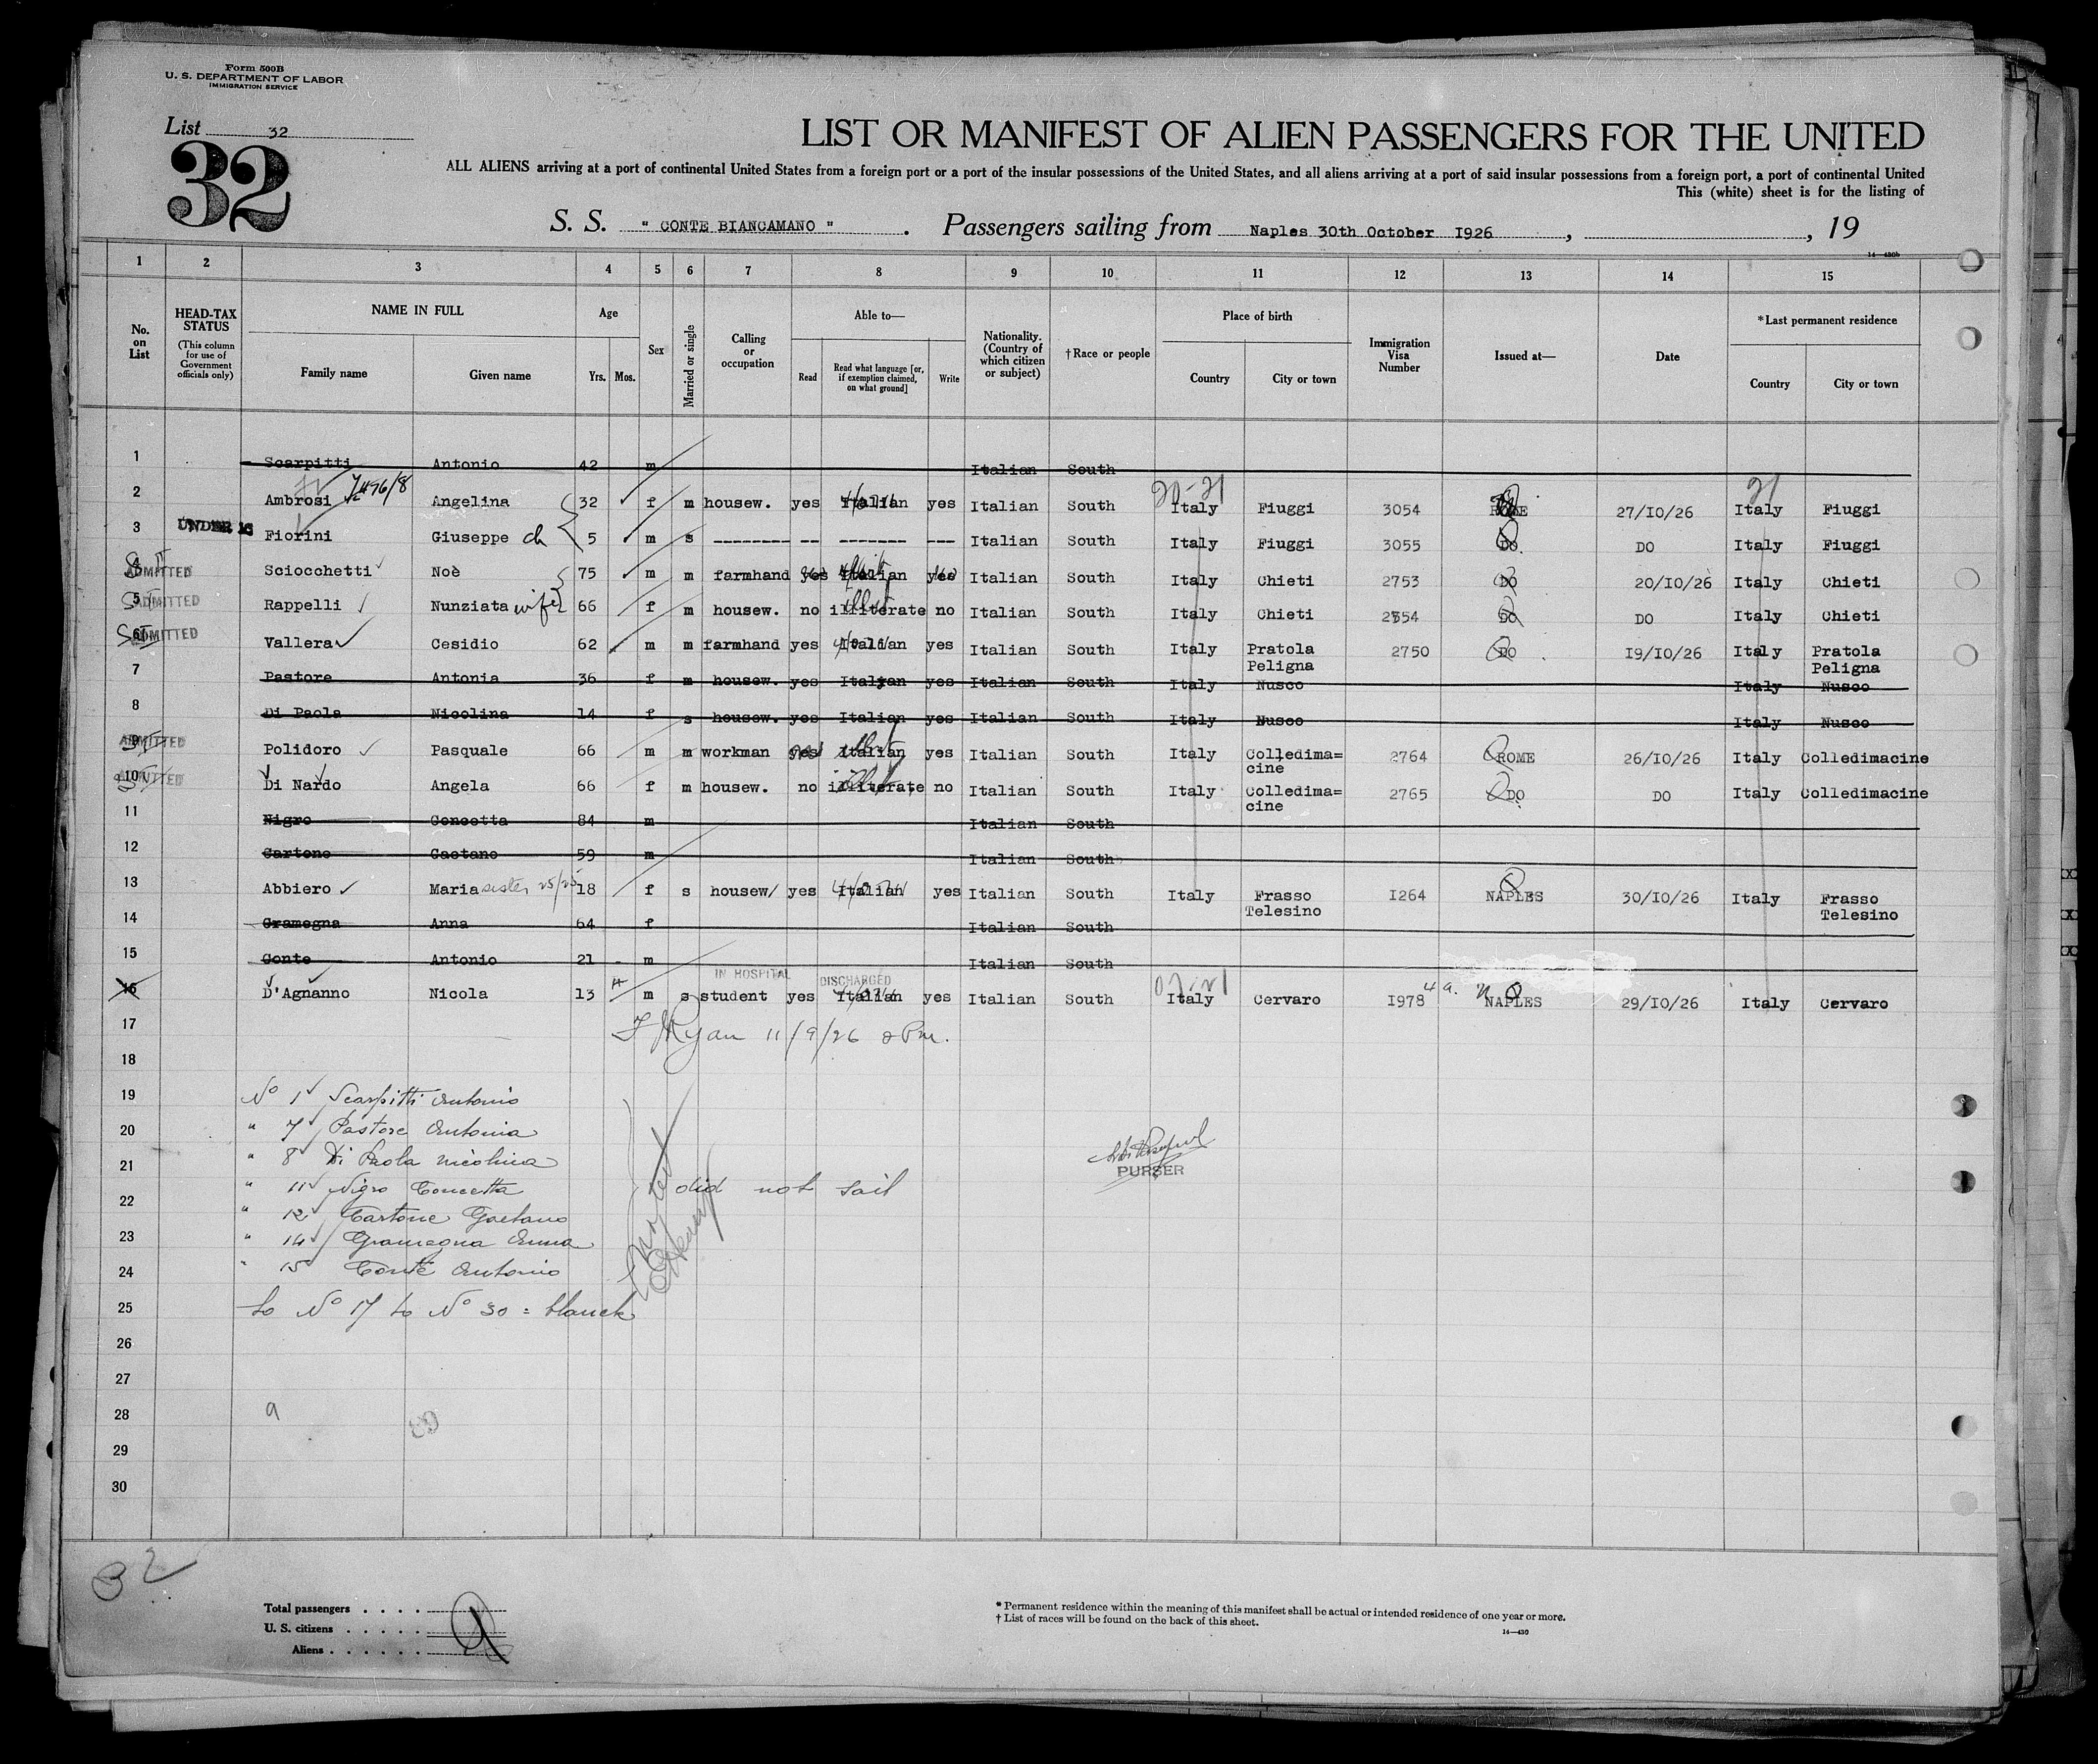 Form 500B
U. S. DEPARTMENT OF LABOR
IMMIGRATION SERVICE
List 32
32
LIST OR MANIFEST OF ALIEN PASSENGERS FOR THE UNITED
ALL ALIENS arriving at a port of continental United States from a foreign port or a port of the insular possessions of the United States, and all aliens arriving at a port of said insular possessions from a foreign port, a port of continental United
This (white) sheet is for the listing of
S. S. " CONTE BIANCAMANO " . Passengers sailing from Naples 30th October 1926 , , 19
14—430b
1 2 3 4 5 6 7 8 9 10 11 12 13 14 15
No. on List
HEAD-TAX STATUS (This column for use of Government officials only)
NAME IN FULL
Family name Given name
Age
Yrs. Mos.
Sex
Married or single
Calling or occupation
Able to—
Read Read what language [or, if exemption claimed, on what ground] Write
Nationality. (Country of which citizen or subject)
†Race or people
Place of birth
Country City or town
Immigration Visa Number
Issued at—
Date
*Last permanent residence
Country City or town
1 Scarpitti Antonio 42 m Italian South
2 Ambrosi Angelina 32 f m housew. yes Italian yes Italian South Italy Fiuggi 3054 ROME 27/IO/26 Italy Fiuggi
3 UNDER 16 Fiorini Giuseppe ch 5 m s -------- -- ------- --- Italian South Italy Fiuggi 3055 DO. DO Italy Fiuggi
4 ADMITTED Sciocchetti Noè 75 m m farmhand yes Italian yes Italian South Italy Chieti 2753 DO 20/IO/26 Italy Chieti
5 ADMITTED Rappelli Nunziata wife 66 f m housew. no illiterate no Italian South Italy Chieti 2754 DO DO Italy Chieti
6 ADMITTED Vallera Cesidio 62 m m farmhand yes Italian yes Italian South Italy Pratola Peligna 2750 DO I9/IO/26 Italy Pratola Peligna
7 Pastore Antonia 36 f m housew. yes Italyan yes Italian South Italy Nusco Italy Nusco
8 Di Paola Nicolina 14 f s housew. yes Italian yes Italian South Italy Nusco Italy Nusco
9 ADMITTED Polidoro Pasquale 66 m m workman yes Italian yes Italian South Italy Colledima= cine 2764 ROME 26/IO/26 Italy Colledimacine
10 ADMITTED Di Nardo Angela 66 f m housew. no illiterate no Italian South Italy Colledima= cine 2765 DO. DO Italy Colledimacine
11 Nigro Concetta 84 m Italian South
12 Cartone Gaetano 59 m Italian South
13 Abbiero Maria sister 25/25 18 f s housew/ yes Italian yes Italian South Italy Frasso Telesino I264 NAPLES 30/IO/26 Italy Frasso Telesino
14 Gramegna Anna 64 f Italian South
15 Conte Antonio 21 - m Italian South
IN HOSPITAL DISCHARGED
16 D'Agnanno Nicola 13 m s student yes Italian yes Italian South Italy Cervaro I978 NAPLES 29/IO/26 Italy Cervaro
17 Ryan 11/9/26 8 Pm.
18
19 No 1 Scarpitti Antonio
20 " 7 Pastore Antonia
21 " 8 Di Paola Nicolina
22 " 11 Nigro Concetta did not sail
" 12 Cartone Gaetano
23 " 14 Gramegna Anna
24 " 15 Conte Antonio
PURSER
25 to No 17 to No 30 = blanck
26
27
28 9
29
30
32
Total passengers . . . .
U. S. citizens . . . . .
Aliens . . . . . .
9
* Permanent residence within the meaning of this manifest shall be actual or intended residence of one year or more.
† List of races will be found on the back of this sheet.
14—430